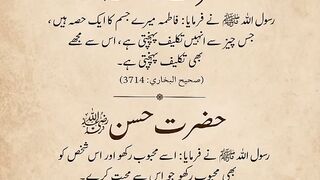 رسول اللہ ﷺ نے فرمایا: فاطمہ میرے جسم کا ایک حصہ ہیں،
جس چیز سے انہیں تکلیف پہنچتی ہے، اس سے مجھے
بھی تکلیف پہنچتی ہے۔
(صحيح البخاري: 3714)
حضرت حسن رضی اللہ عنہ
رسول اللہ ﷺ نے فرمایا: اسے محبوب رکھو اور اس شخص کو
بھی محبوب رکھو جو اس سے محبت کرے۔